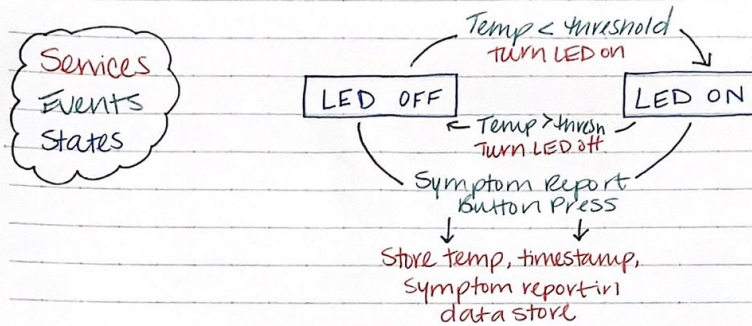 Services
Events
States
Temp < threshold
Turn LED on
LED OFF
LED ON
Temp > thresh
Turn LED off
Symptom Report
Button Press
Store temp, timestamp,
symptom report in
data store